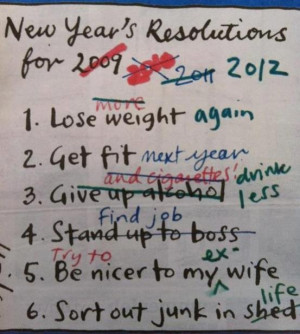 New Year's Resolutions
for 2009 2011 2012
more
1. Lose weight again
2. Get fit next year
and cigarettes!
3. Give up alcohol drink less
find job
4. Stand up to boss
Try to ex-
5. Be nicer to my wife
life
6. Sort out junk in shed